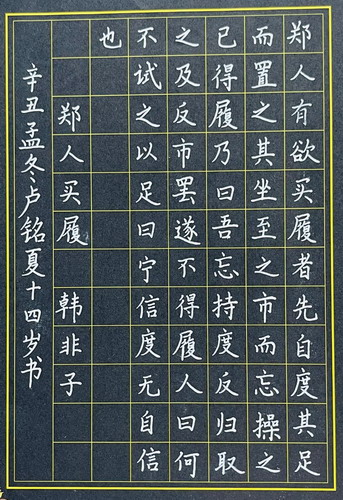 郑人有欲买履者先自度其足
而置之其坐至之市而忘操之
已得履乃曰吾忘持度反归取
之及反市罢遂不得履人曰何
不试之以足曰宁信度无自信
也
郑人买履 韩非子
辛丑孟冬卢铭夏十四岁书